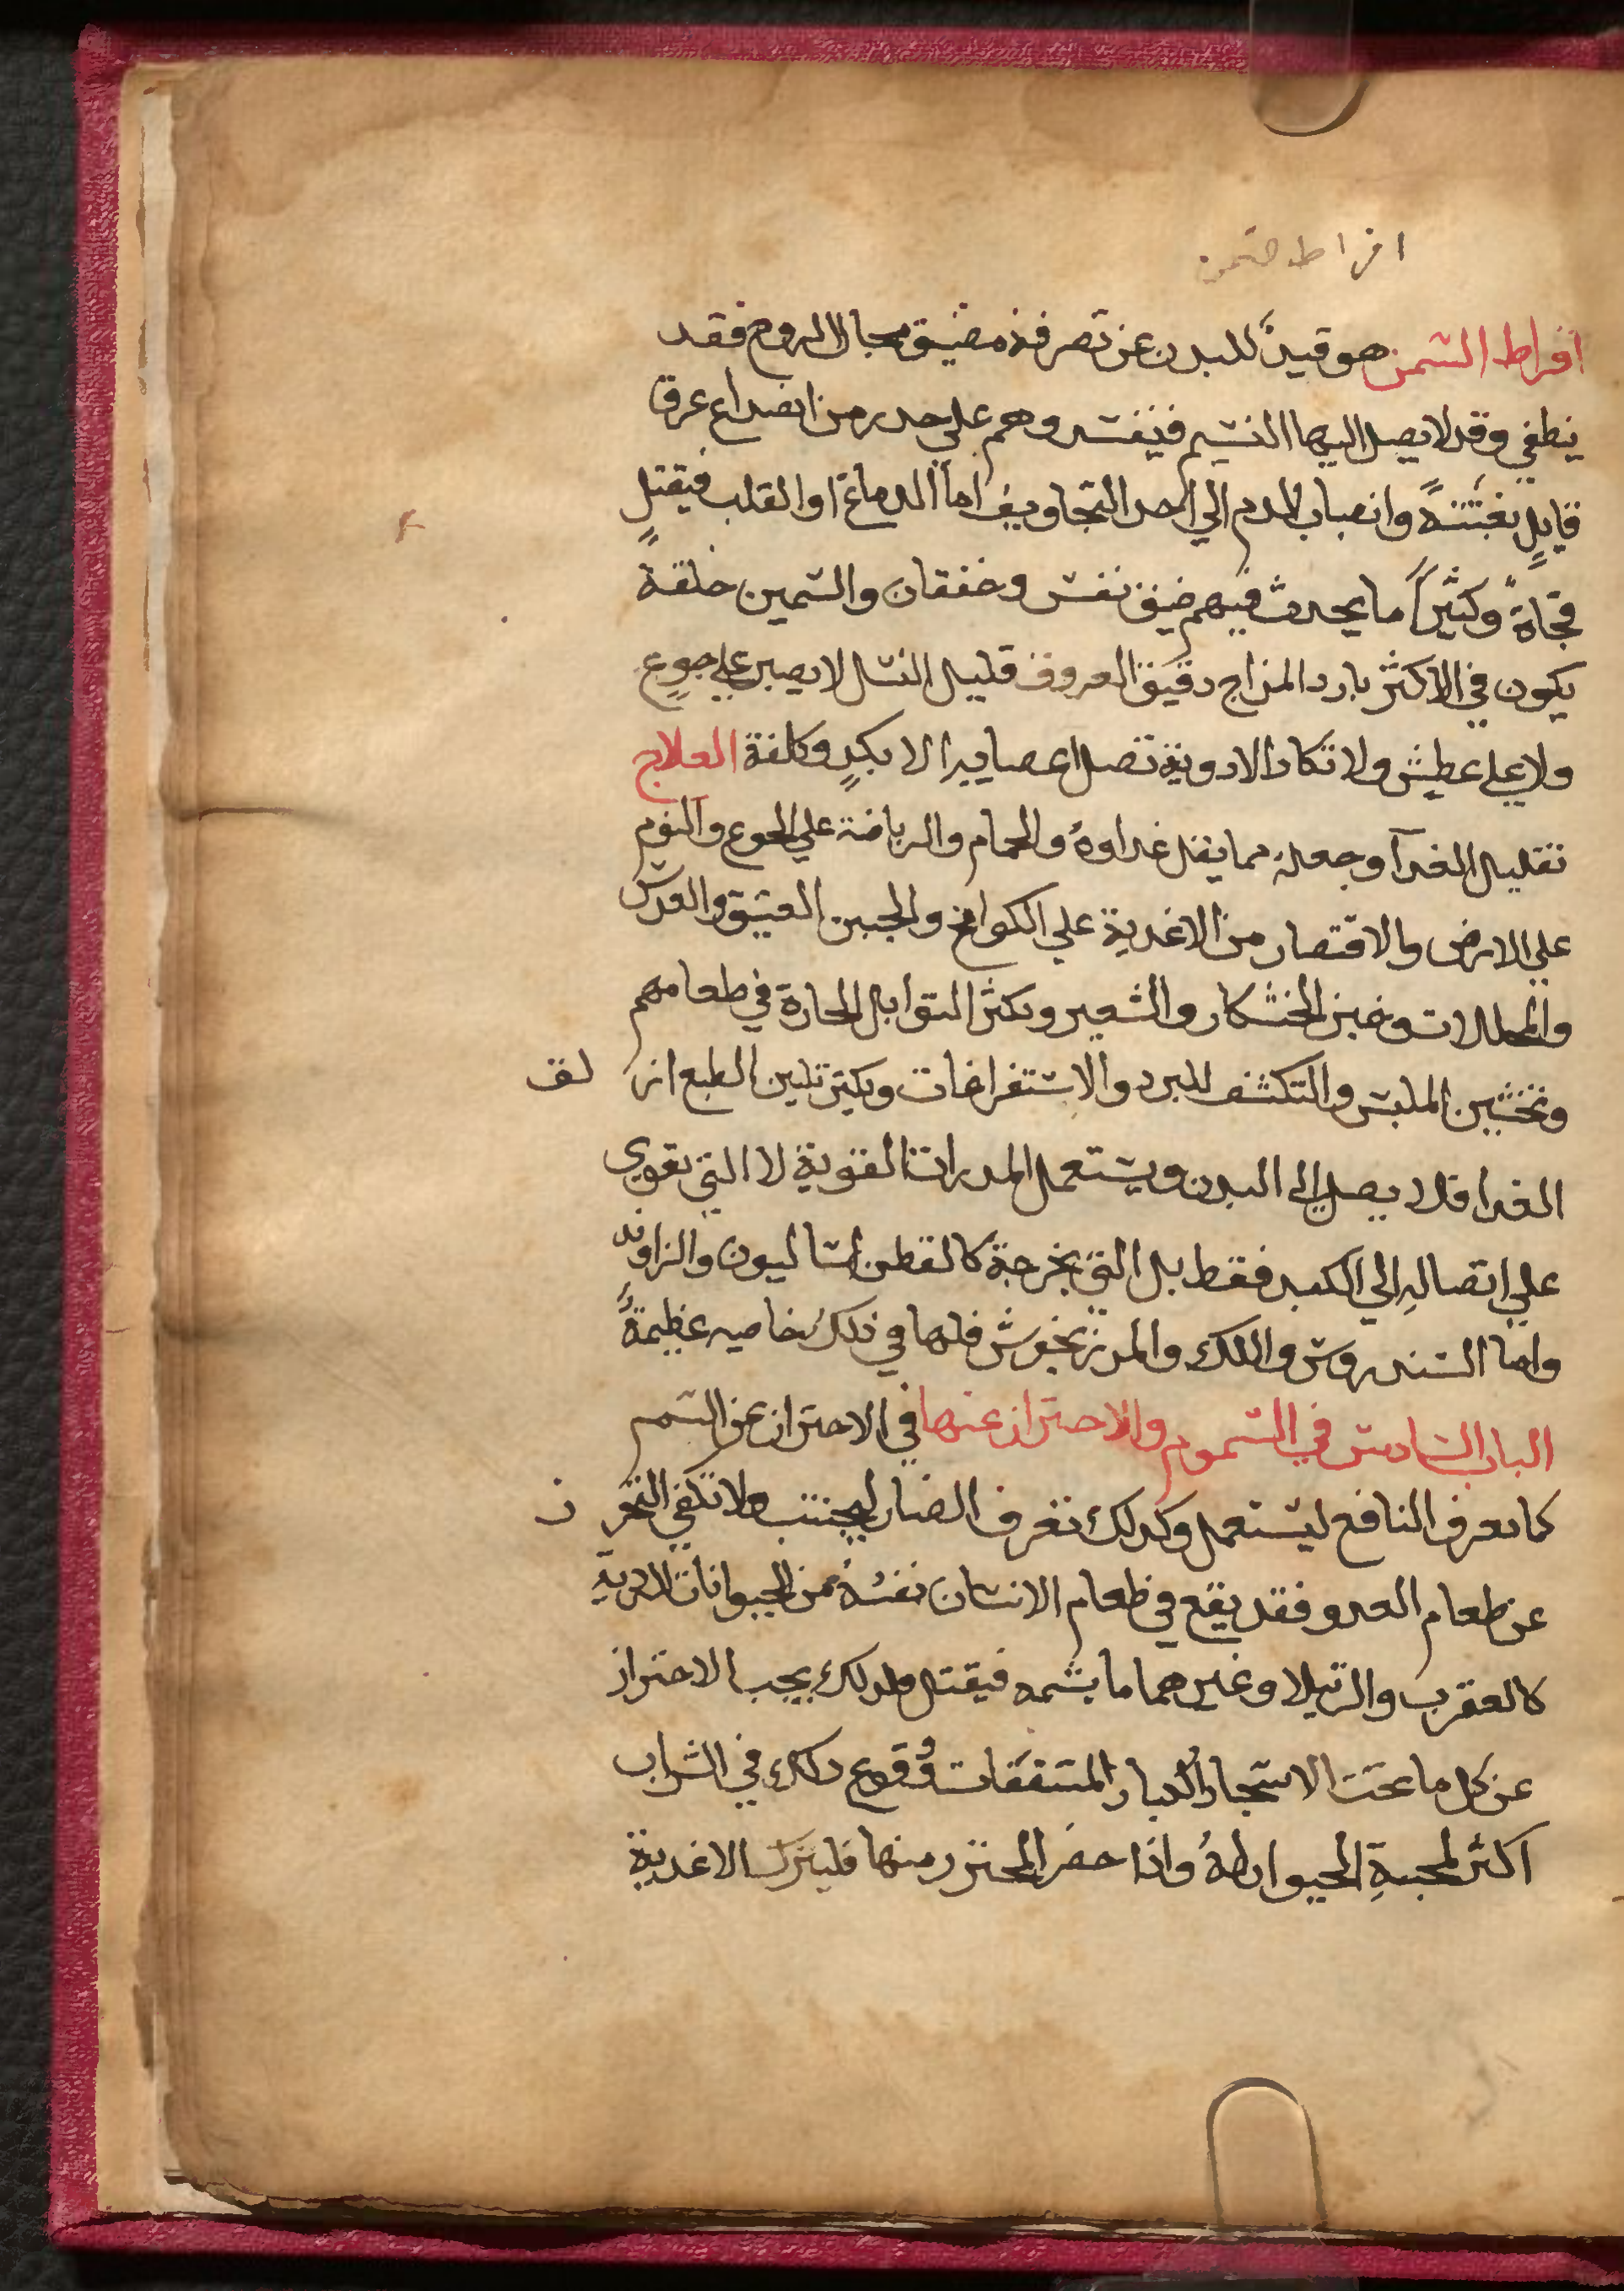 افراط السمن
افراط السمن هو قيدٌ للبدن عن تصرفه مضيق مجال الروح فقد
ينطفي وقد لا يصل اليها النسيم فيفسد وهم على حدر من انصداع عرق
قايلٍ بغتتةً وانصباب الدم الي احد التجاويف اما الدماغ او القلب فيقتل
فجاةً وكثيراً ما يحدث فيهم ضيق نفس وخفقان والسمين خلقة
يكون في الاكثر بارد المزاج دقيق العروق قليل النسل لا يصبر علي جوع
ولا علي عطش ولا تكاد الادوية تصل اعصابهم الا بكدٍ وكلفة العلاج
تقليل الغدآ وجعله مما يقل غداوهُ والحمام والرياضة علي الجوع والنوم
علي الارض والاقتصار من الاغدية علي الكوامخ والجبن العتيق والعدس
والمخللات وخبز الخشكار والشعير ويكثر التوابل الحارة في طعامهم
وتخشين الملبس والتكشف للبرد والاستفراغات ويكثر تليين الطبع ازلق
الغدا فلا يصل الي البدن ويستعمل المدرات القوية لا التي تقوي
علي اتصالهِ الي الكبد فقط بل التي تخرجة كالفطراساليون والزاوند
واما السندروس واللك والمرزنجوش فلها في ذلك خاصيه عظيمةً
الباب السادس في السموم والاحتراز عنها في الاحتراز عن السم
كما نعرف النافع ليستعمل وكدلك نعرف الضار ليجتنب ولا تكفي التحرز
عن طعام العدو فقد يقع في طعام الانسان نفسهُ من الحيوانات الرديه
كالعقرب والرتيلا وغيرهما ما يسمه فيقتل ولدلك يجب الاحتراز
عن كل ما تحت الاشجار الكبار المسقفات وُقوع دلك في الشراب
اكثر لمحبةِ الحيوان لهُ واذا حضر المحترز منها فليترك الاغدية